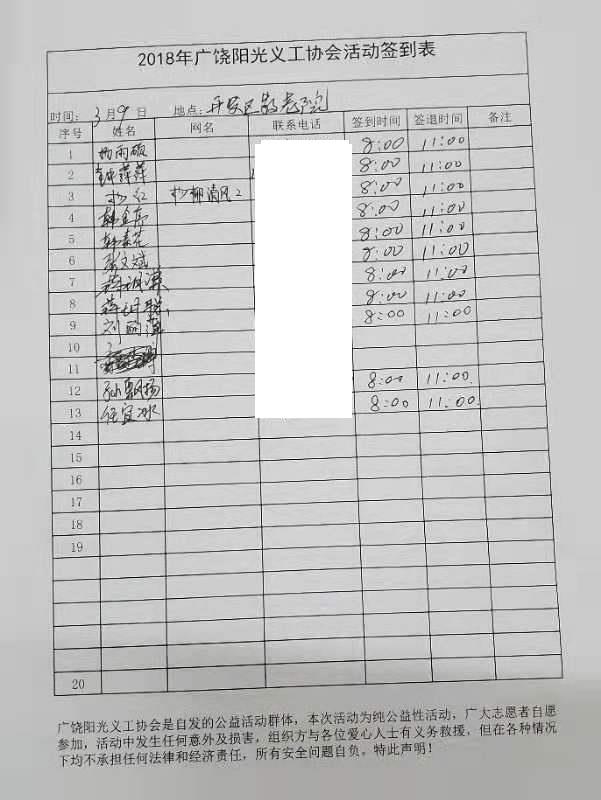 2018年广饶阳光义工协会活动签到表
时间：3月9日 地点：开发区敬老院
序号 姓名 网名 联系电话 签到时间 签退时间 备注
1 杨雨硕 8:00 11:00
2 钟萍萍 8:00 11:00
3 杨红 杨柳清风2 8:00 11:00
4 8:00 11:00
5 韩素花 8:00 11:00
6 文斌 8:00 11:00
7 8:00 11:00
8 8:00 11:00
9 刘丽萍 8:00 11:00
10
11
12 孙鹏扬 8:00 11:00
13 任宜冰 8:00 11:00
14
15
16
17
18
19
20
广饶阳光义工协会是自发的公益活动群体，本次活动为纯公益性活动，广大志愿者自愿
参加，活动中发生任何意外及损害，组织方与各位爱心人士有义务救援，但在各种情况
下均不承担任何法律和经济责任，所有安全问题自负。特此声明！